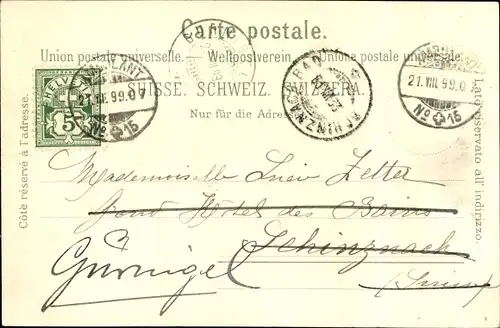 Carte postale.
Union postale universelle. Weltpostverein. Unione postale universale.
SUISSE. SCHWEIZ. SVIZZERA.
Nur für die Adresse
Côté réservé à l'adresse.
Lato riservato all' indirizzo.
HELVETIA
5
21.VIII.99.
No 15
21.VIII.99.
No 15
BAD
SCHINZNACH
Mademoiselle Zetter
Hôtel des Bains
Schinznach
Gurnigel
(Suisse)